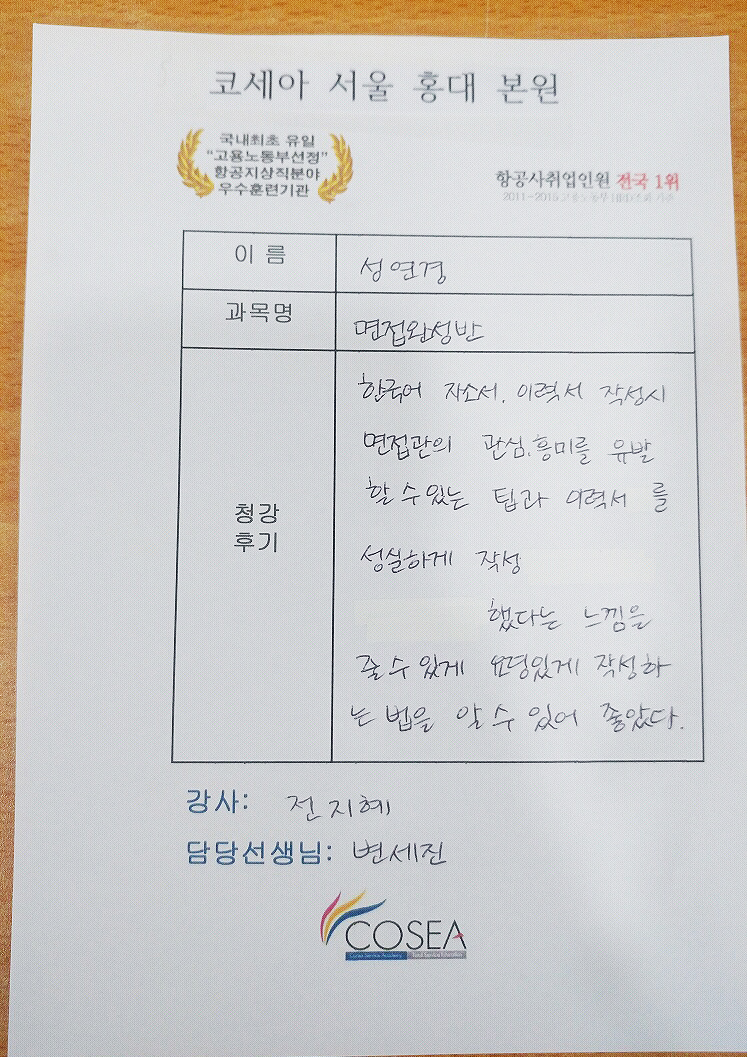 코세아 서울 홍대 본원
국내최초 유일
"고용노동부선정"
항공지상직분야
우수훈련기관
항공사취업인원 전국 1위
2011~2015 고용노동부 HRD조회 기준
이 름
성연경
과목명
면접완성반
청강
후기
한국어 자소서, 이력서 작성시
면접관의 관심,흥미를 유발
할 수 있는 팁과 이력서 를
성실하게 작성
했다는 느낌을
줄 수 있게 요령있게 작성하
는 법을 알 수 있어 좋았다.
강사: 전지혜
담당선생님: 변세진
COSEA
Total Service Education